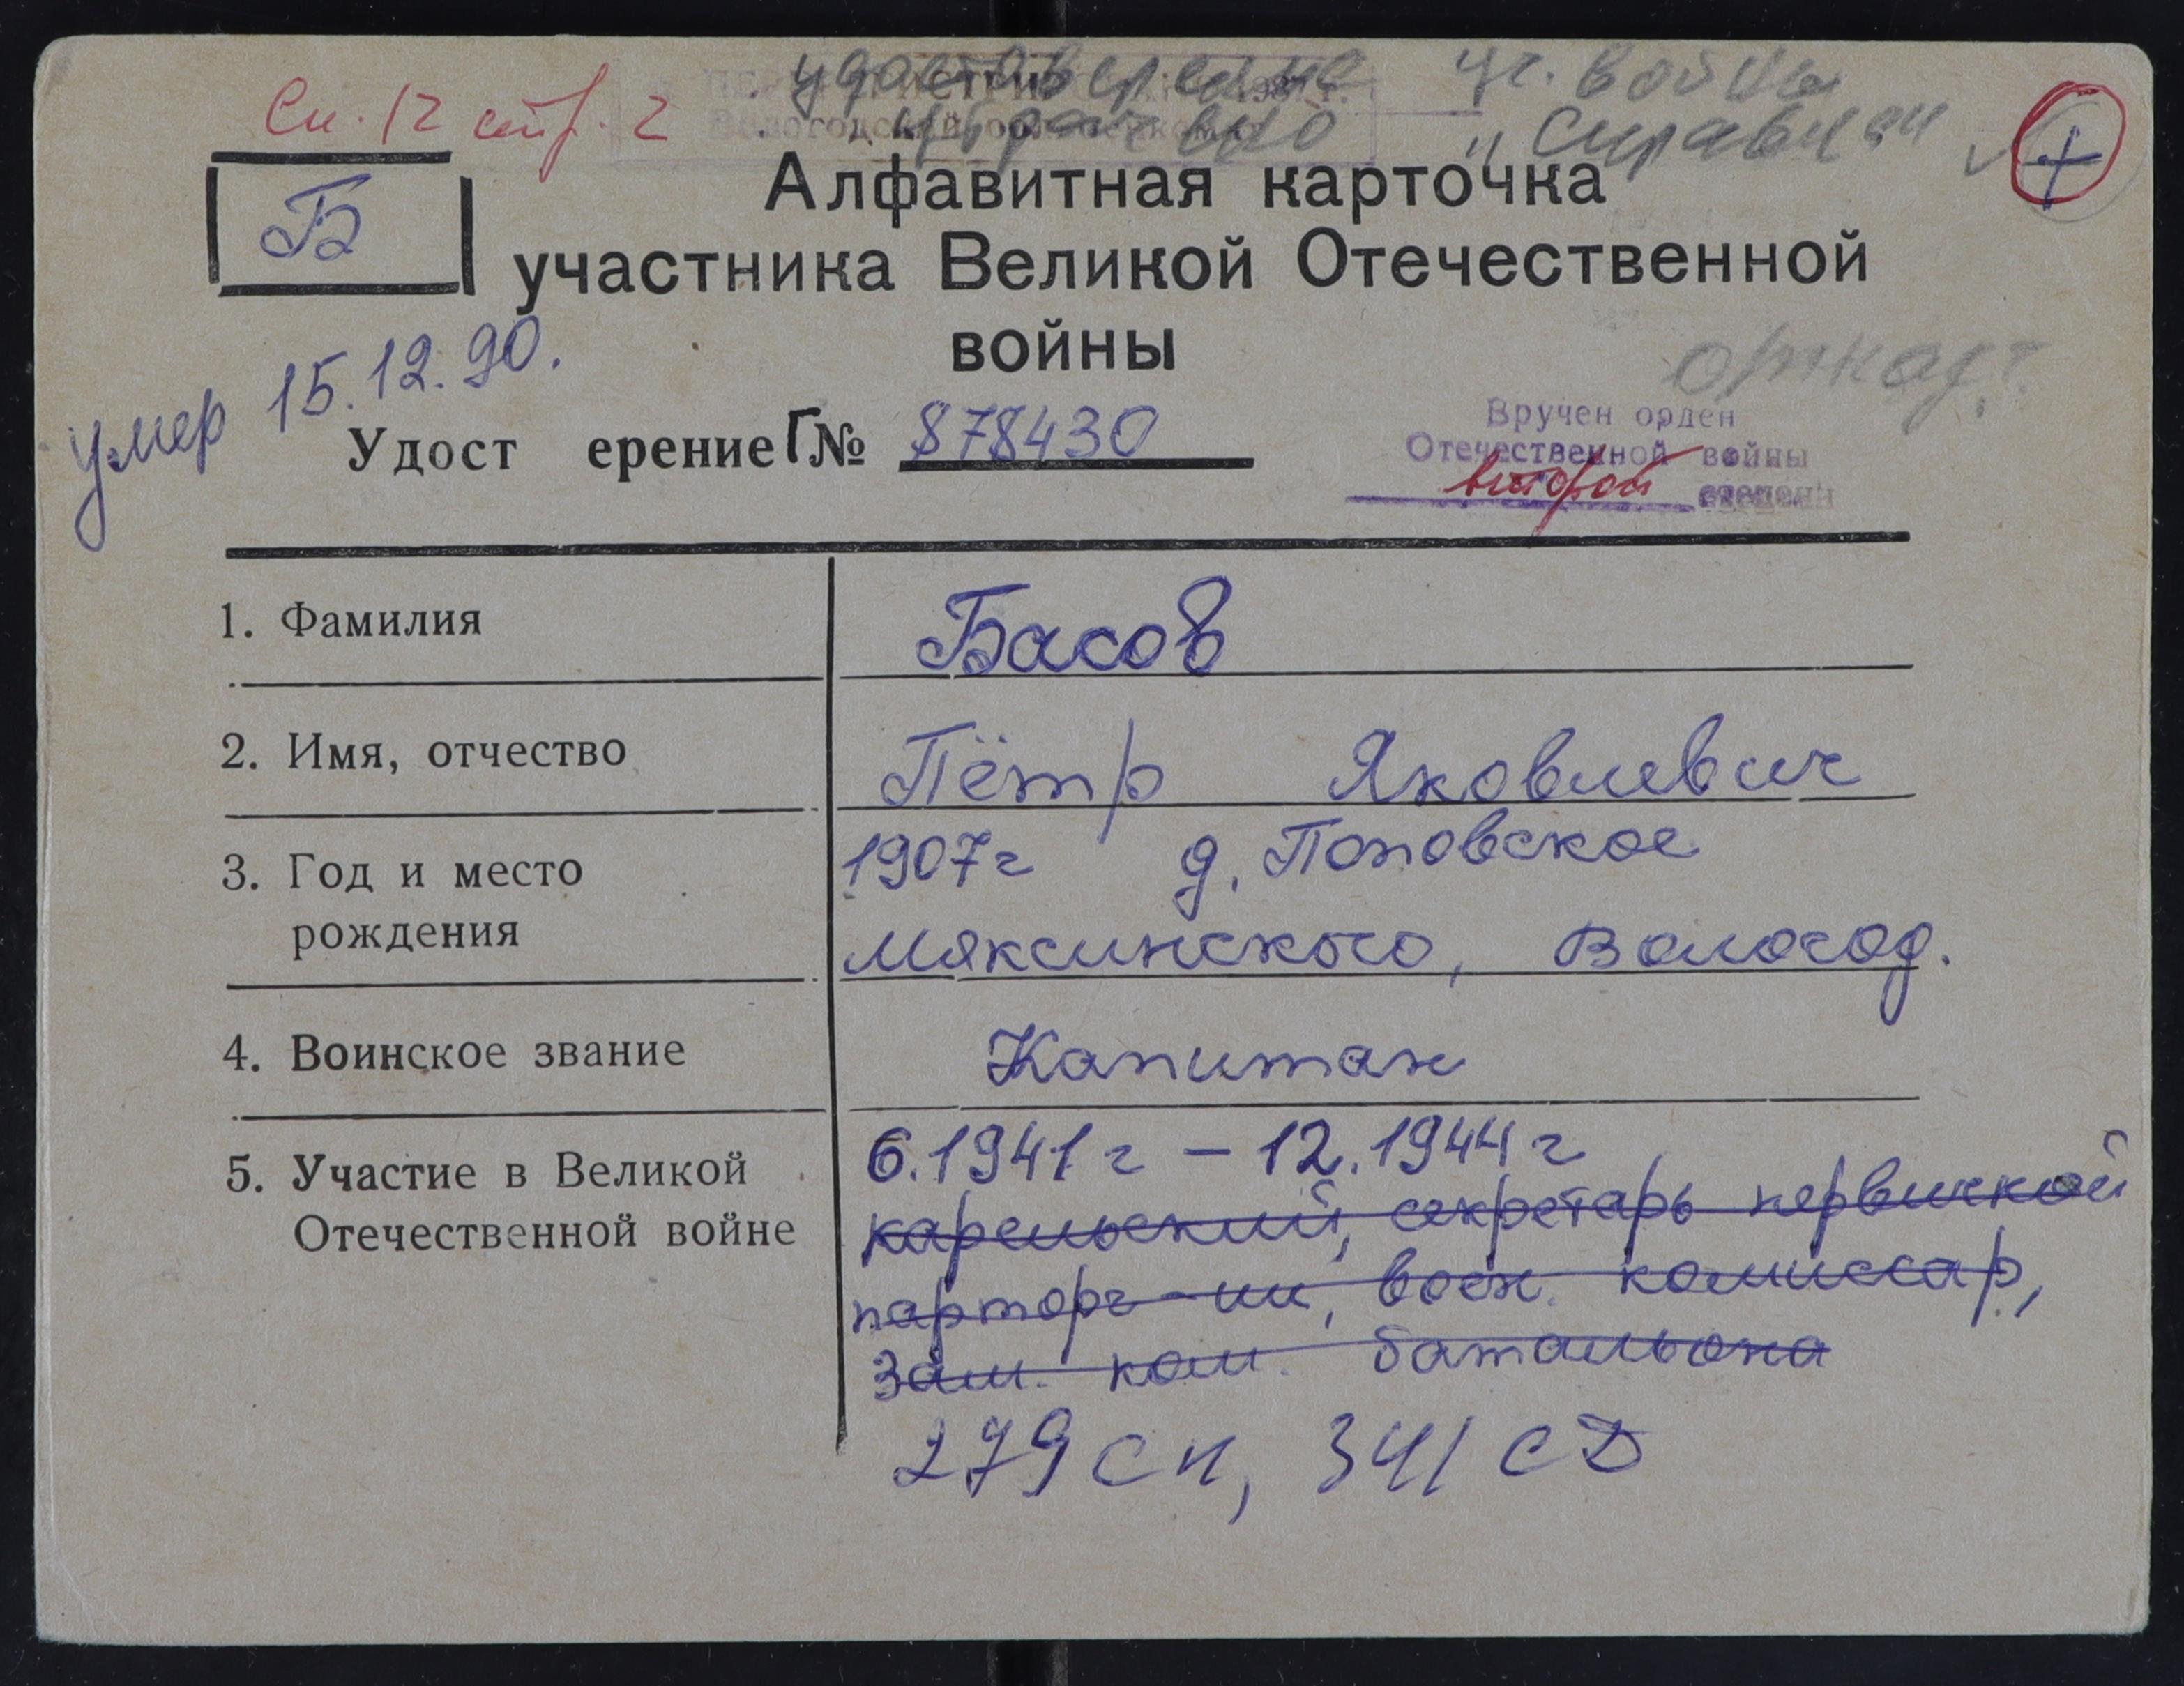 Сп. 12 стр. 2
удостоверение уч. войны
утрачено "Справка"
Б
+
Алфавитная карточка
участника Великой Отечественной
войны
умер 15.12.90.
Удост ерение Г№ 878430
Вручен орден
Отечественной войны
второй степени
1. Фамилия Басов
2. Имя, отчество Пётр Яковлевич
3. Год и место 1907г д. Поповское
рождения Мяксинского, Вологод.
4. Воинское звание Капитан
5. Участие в Великой 6.1941г – 12.1944г
Отечественной войне карельский, секретарь первичной
парторг-ии, воен. комиссар,
зам. ком. батальона
279 сп, 341 СД